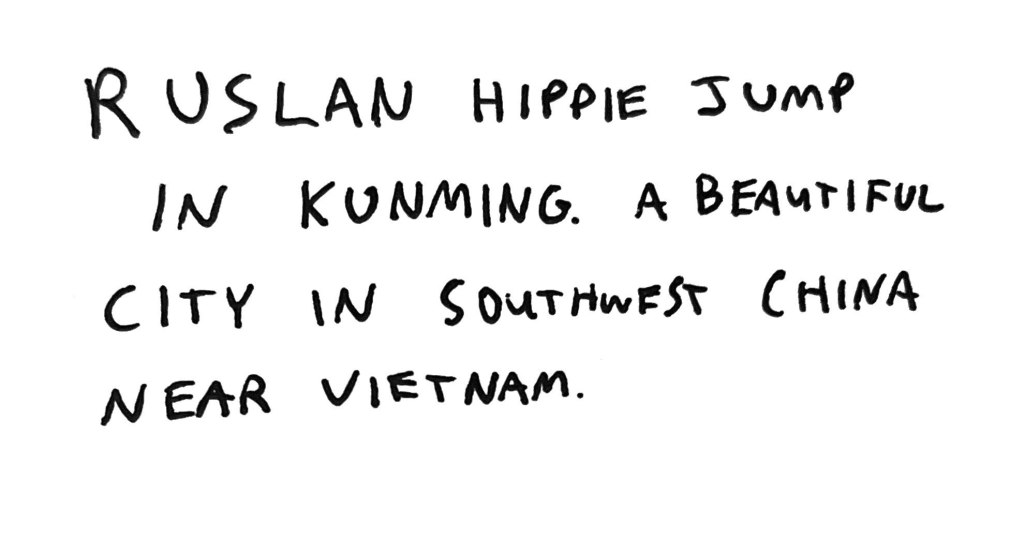 RUSLAN HIPPIE JUMP
IN KUNMING. A BEAUTIFUL
CITY IN SOUTHWEST CHINA
NEAR VIETNAM.